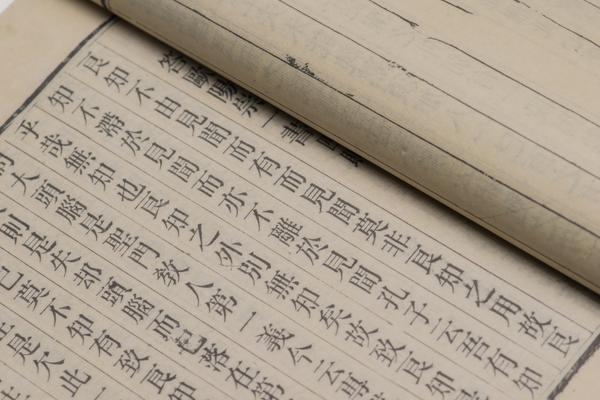 答歐陽崇一書
良知不由見聞而有而見聞莫非良知之用故良
知不滯於見聞而亦不離於見聞孔子云吾有知
乎哉無知也良知之外別無知矣故致良知是
大頭腦是聖門教人第一義今云專
則是失却頭腦而已落在第
已莫不知有致良
是欠此